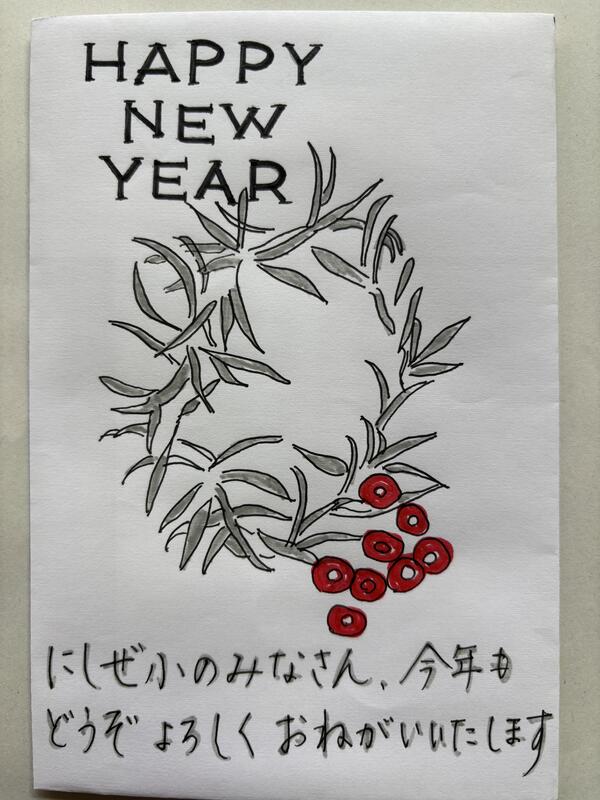 HAPPY
NEW
YEAR
にしぜ小のみなさん、今年も
どうぞよろしくおねがいいたします